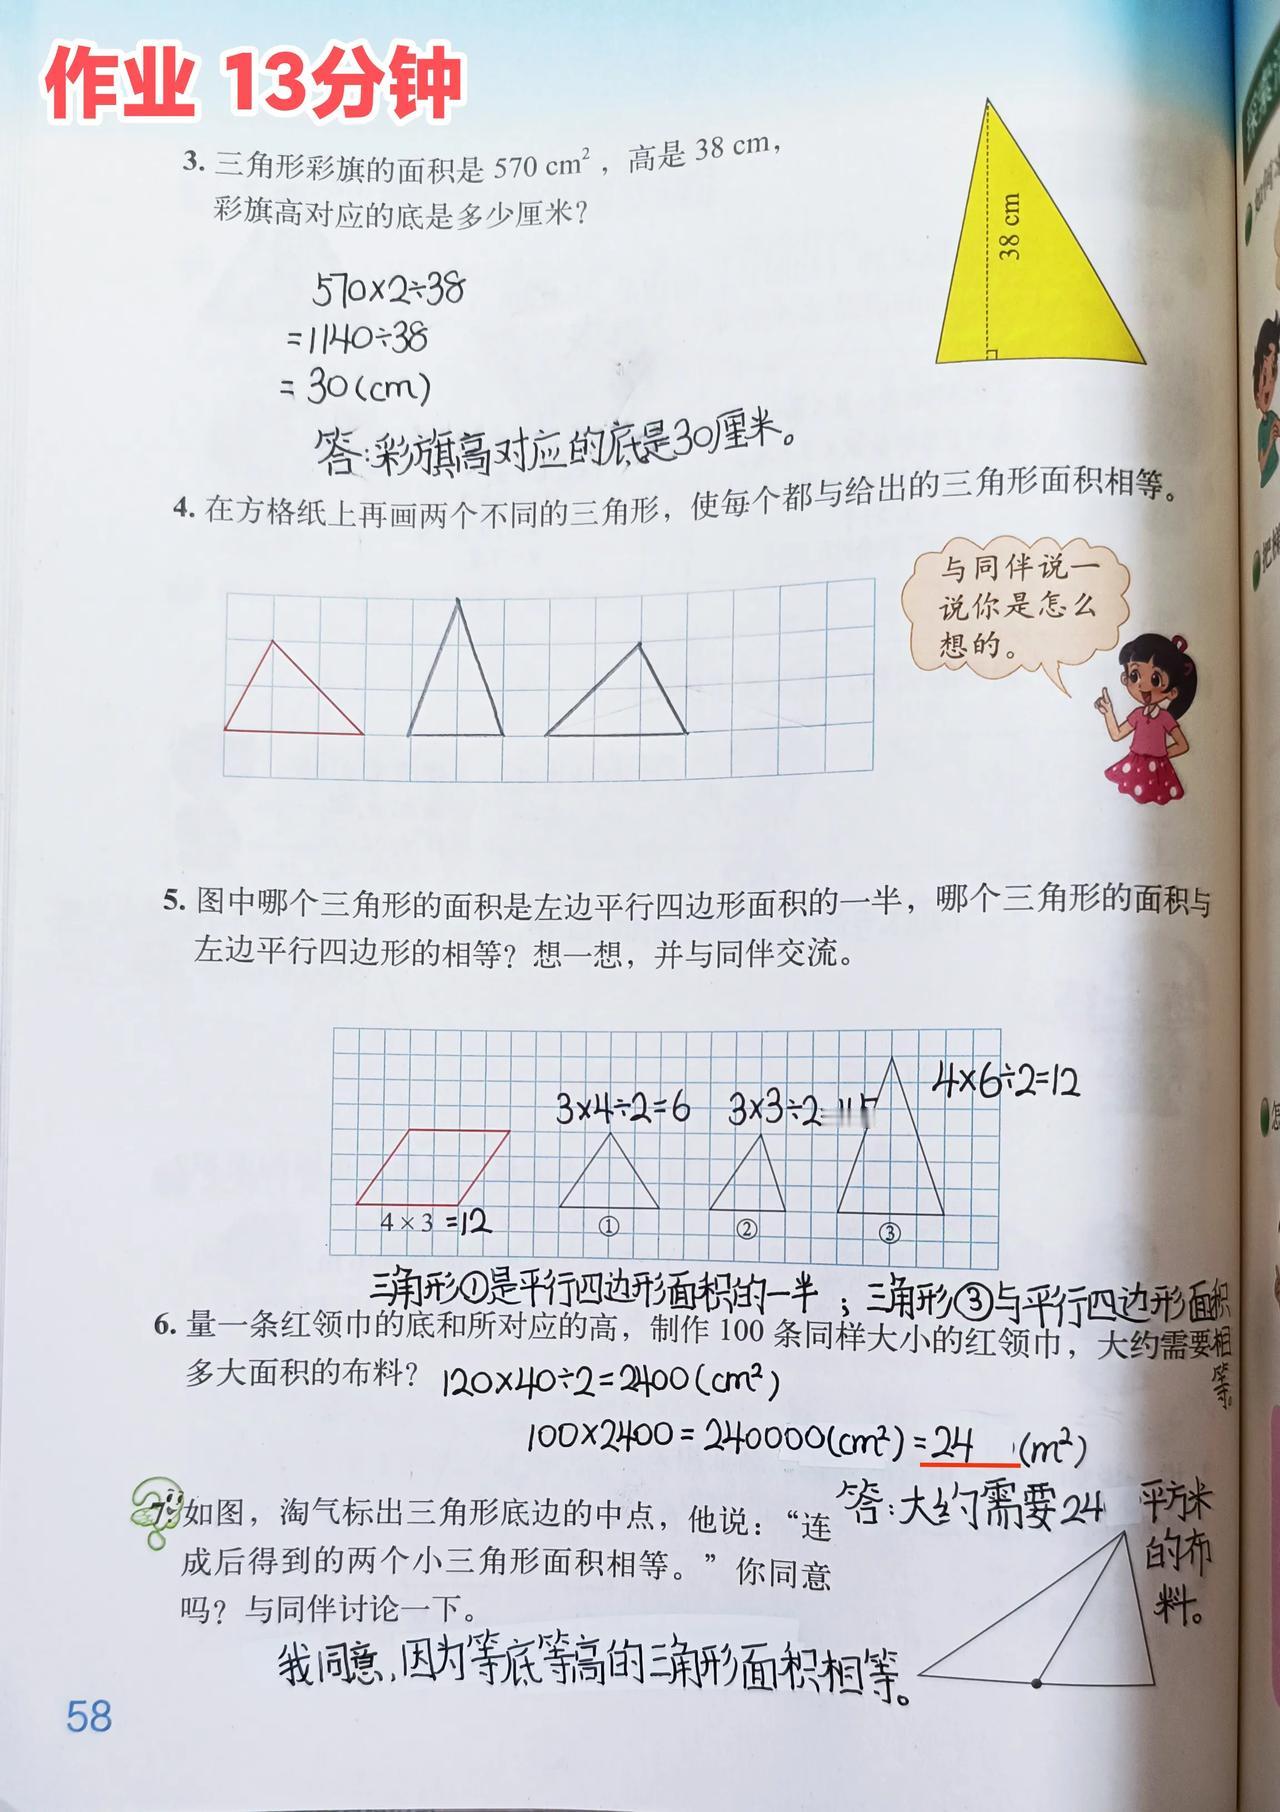 作业 13分钟
3. 三角形彩旗的面积是 570 cm²，高是 38 cm，
彩旗高对应的底是多少厘米？
38 cm
570×2÷38
=1140÷38
=30(cm)
答:彩旗高对应的底是30厘米。
4. 在方格纸上再画两个不同的三角形，使每个都与给出的三角形面积相等。
与同伴说一
说你是怎么
想的。
5. 图中哪个三角形的面积是左边平行四边形面积的一半，哪个三角形的面积与
左边平行四边形的相等？想一想，并与同伴交流。
4×6÷2=12
3×4÷2=6
3×3÷2
4×3 =12
①
②
③
三角形①是平行四边形面积的一半；三角形③与平行四边形面积
相等。
6. 量一条红领巾的底和所对应的高，制作 100 条同样大小的红领巾，大约需要
多大面积的布料？
120×40÷2=2400(cm²)
100×2400=240000(cm²)=24 (m²)
答:大约需要24平方米
的布
料。
7. 如图，淘气标出三角形底边的中点，他说：“连
成后得到的两个小三角形面积相等。”你同意
吗？与同伴讨论一下。
我同意,因为等底等高的三角形面积相等。
58